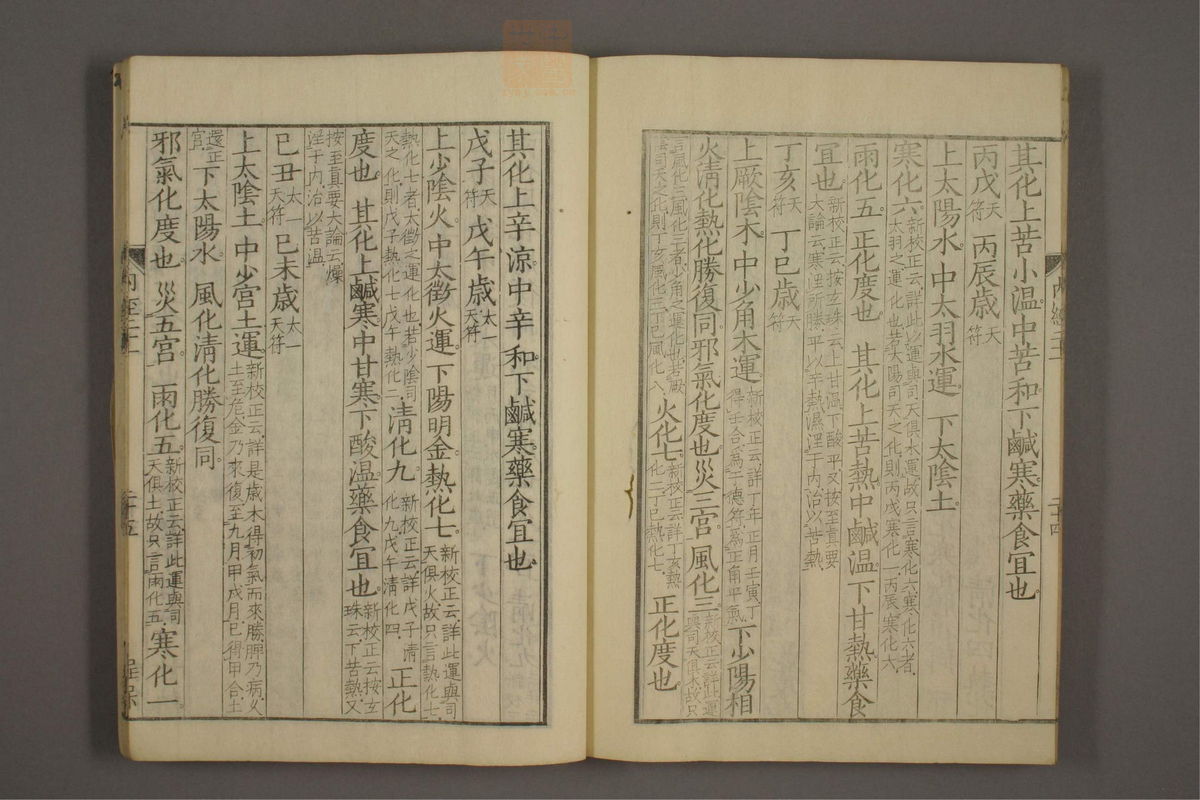 其化上苦小温中苦和下鹹寒藥食宜也
丙戊天符 丙辰歲天符
上太陽水中太羽水運下太陰土
寒化六新校正云詳此以運與司天俱水運故只言寒化六寒化六者太羽之運化也若太陽司天之化則丙戌寒化一丙辰寒化六
雨化五 正化度也 其化上苦熱中鹹温下甘熱藥食
宜也新校正云按玄珠云上甘温下酸平又按至眞要大論云寒淫所勝平以辛熱濕淫于内治以苦熱
丁亥天符 丁巳歲天符
上厥陰木中少角木運新校正云詳丁年正月壬寅丁得壬合為干德符為正角平氣下少陽相
火清化熱化勝復同邪氣化度也災三宮風化三新校正云詳此運與司天俱木故只
言風化三風化三者少角之運化也若厥陰司天之化則丁亥風化三丁巳風化八火化七新校正云詳丁亥熱化二丁巳熱化七正化度也
内經二十一
二十四
其化上辛涼中辛和下鹹寒藥食宜也
戊子天符 戊午歲太一天符
上少陰火中太徵火運下陽明金熱化七新校正云詳此運與司天俱火故只言熱化七
熱化七者太徵之運化也若少陰司天之化則戊子熱化七戊午熱化二清化九新校正云詳戊子清化九戊午清化四正化
度也 其化上鹹寒中甘寒下酸温藥食宜也新校正云按玄珠云下苦熱又
按至眞要大論云燥淫于内治以苦温
己丑太一天符 己未歲太一天符
上太陰土中少宮土運新校正云詳是歲木得初氣而來勝脾乃病火土至危金乃來復至九月甲戌月己得甲合土
還正宮下太陽水 風化清化勝復同
邪氣化度也 災五宮 雨化五新校正云詳此運與司天俱土故只言雨化五寒化一
内經二十一
二十五